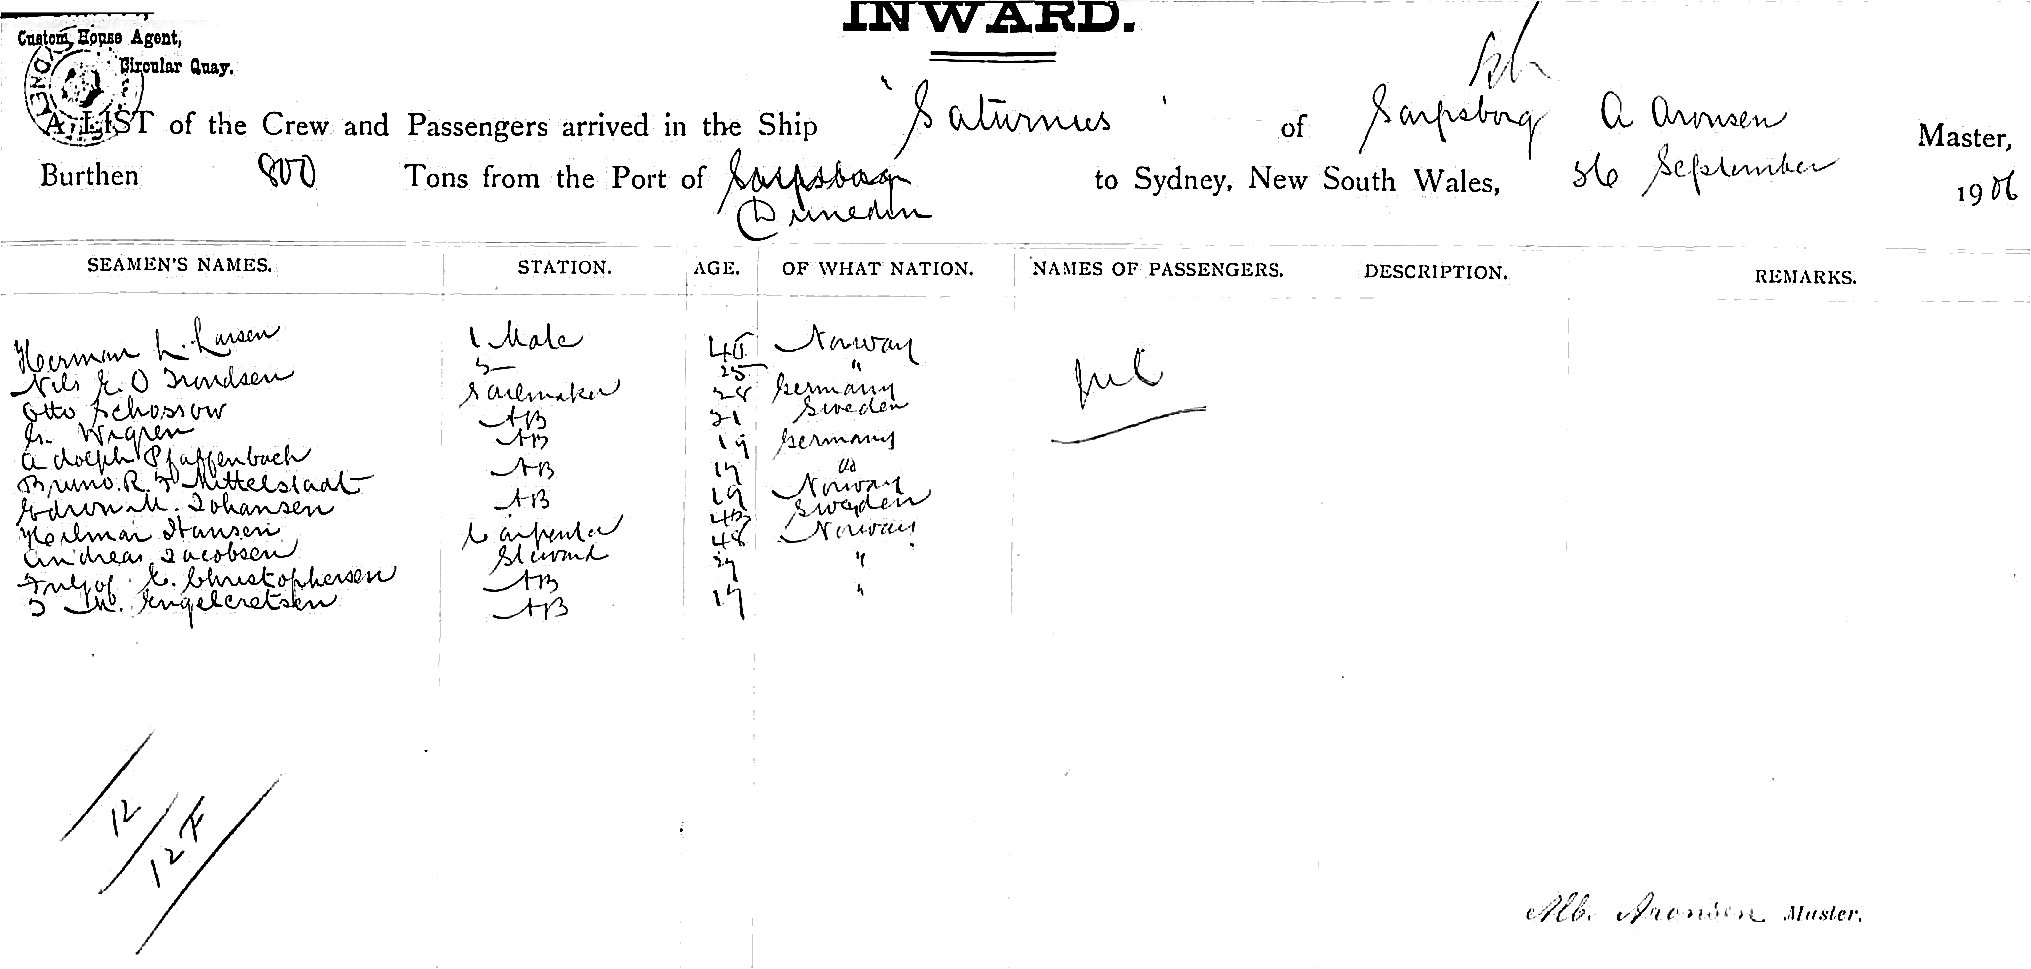 INWARD.
Custom House Agent,
Circular Quay.
A LIST of the Crew and Passengers arrived in the Ship "Saturnus" of Sarpsborg A Aronsen Master,
Burthen 800 Tons from the Port of Sarpsborg to Sydney, New South Wales, September 1906
Dunedin
SEAMEN'S NAMES. STATION. AGE. OF WHAT NATION. NAMES OF PASSENGERS. DESCRIPTION. REMARKS.
Herman L. Larsen 1 Mate Norway
Nils E. O Trondsen 25 "
Otto Schossow Sailmaker 28 Germany
G. Wigren AB 21 Sweden
Adolph Pfaffenbach AB 19 Germany
Bruno. R. F Mittelstadt AB 17 do
Edwin M. Johansen AB 19 Norway
Heilmar Hansen Carpenter Sweden
Andreas Jacobsen Steward 48 Norway
C. Christophersen AB "
M. Engelcretsen AB 17 "
nil
12
12 F
Alb. Aronsen Master.